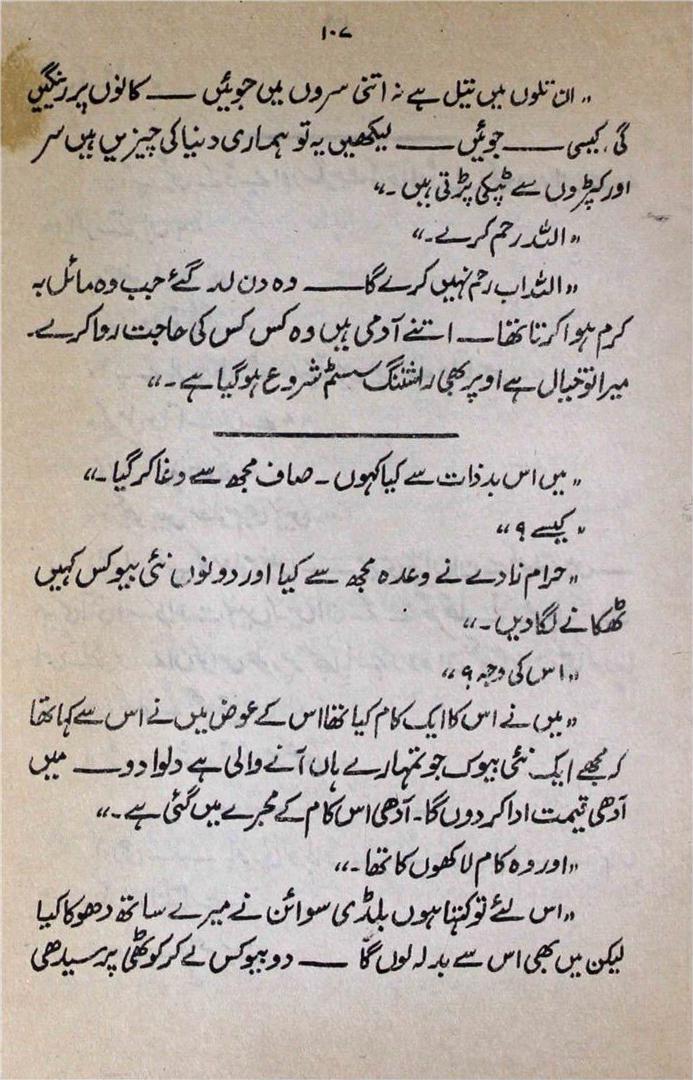 ۱۰۷
"ان تلوں میں تیل ہے نہ اتنی سروں میں جوئیں —— کانوں پر رینگیں
گی، کیسی —— جوئیں —— لیکھیں یہ تو ہماری دنیا کی چیزیں ہیں سر
اور کپڑوں سے ٹپکی پڑتی ہیں۔"
"اللہ رحم کرے۔"
"اللہ اب رحم نہیں کرے گا —— وہ دن لد گئے جب وہ مائل بہ
کرم ہوا کرتا تھا —— اتنے آدمی ہیں وہ کس کس کی حاجت روا کرے۔
میرا تو خیال ہے اوپر بھی راشننگ سسٹم شروع ہو گیا ہے۔"
"میں اس بدذات سے کیا کہوں۔ صاف مجھ سے دغا کر گیا۔"
"کیسے؟"
"حرام زادے نے وعدہ مجھ سے کیا اور دونوں نئی بیوکس کہیں
ٹھکانے لگا دیں۔"
"اس کی وجہ؟"
"میں نے اس کا ایک کام کیا تھا اس کے عوض میں نے اس سے کہا تھا
کہ مجھے ایک نئی بیوک جو تمہارے ہاں آنے والی ہے دلوا دو —— میں
آدھی قیمت ادا کر دوں گا۔ آدھی اس کام کے مجرے میں گئی ہے۔"
"اور وہ کام لاکھوں کا تھا۔"
"اس لئے تو کہتا ہوں بلڈی سوائن نے میرے ساتھ دھوکا کیا
لیکن میں بھی اس سے بدلہ لوں گا —— دو بیوکس لے کر کوٹھی پر سیدھی